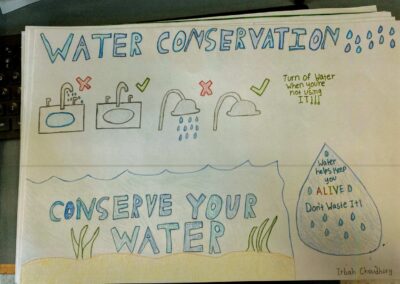 WATER CONSERVATION
Turn of Water
when you're
not using
IT!!!
Water
helps keep
you
ALIVE
Don't Waste It!
CONSERVE YOUR
WATER
Irbah Chowdhury